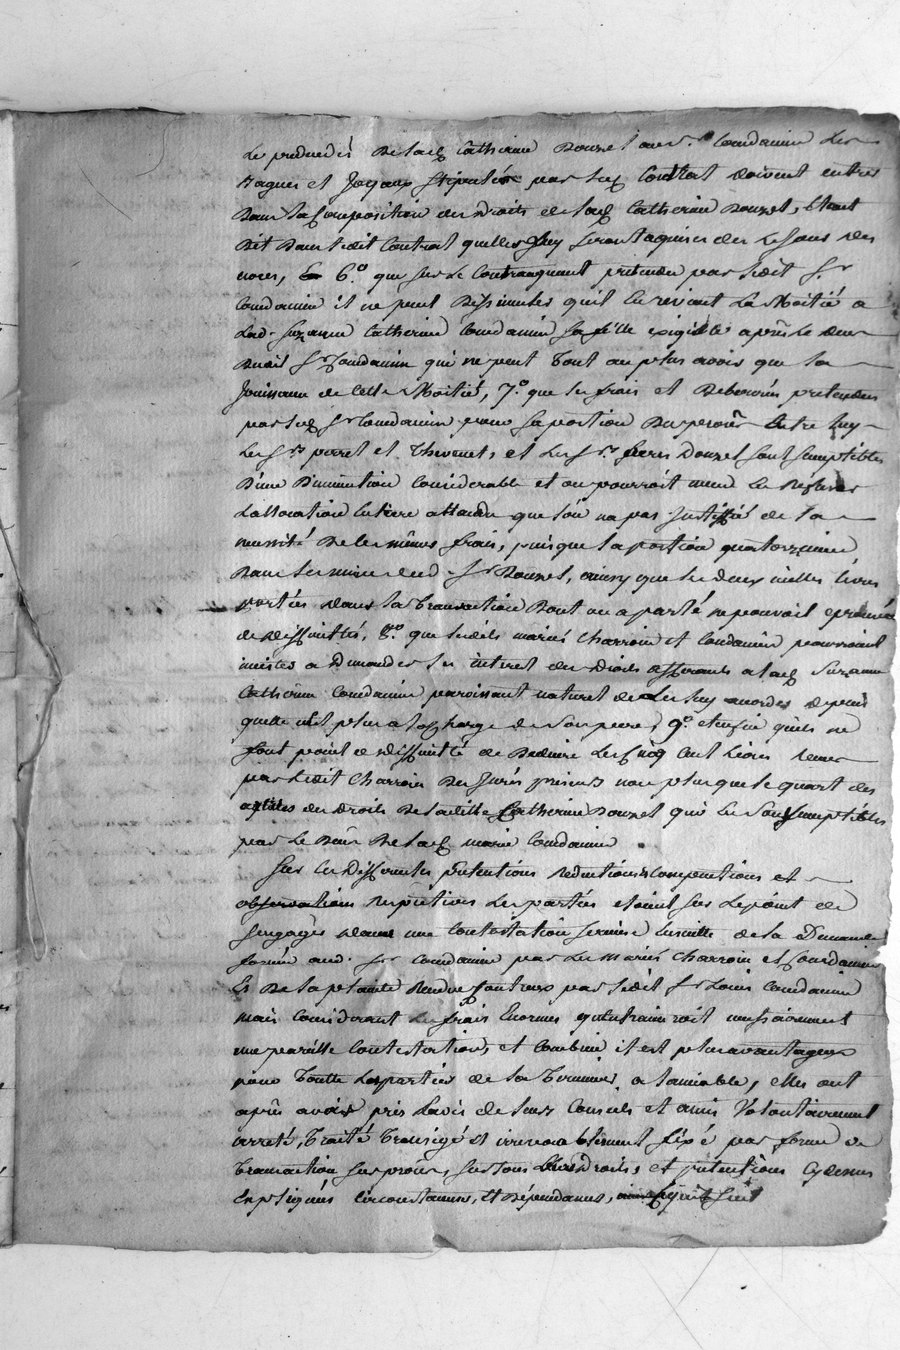 Le prédécès De lad. Catherine Douzet aud. sr. Coudamin Les
Bagues et Joyaux stipulés par led. Contrat doivent entrer
Dans la Composition des droits de lad. Catherine Douzet, étant
Dit Dans ledit Contrat quelles luy seront aquises des Le jour des
noces, 6.o que sur Le Contraugment prétendu par ledit Sr.
Coudamin il ne peut Dissimuler qu'il en revient La Moitié a
Lad. Suzanne Catherine Coudamin sa fille exigible après Le
Sr Coudamin qui ne peut Tout au plus avoir que la
Jouissance de Cette Moitié, 7.o que les frais et Deboursés prétendus
par led. Sr Coudamin pour sa portion Du procès Entre luy
Les Srs. perret et Thevenet, et Les Srs. freres Douzet sont susceptibles
D'une Diminution Considerable et on pourroit meme en Refuser
L'allocation Entiere attendu que l'on na pas Justiffié de la
necessité De les mêmes frais, puisque la portion
Dans du d. Sr Douzet, ainsy que les deux milles livres
portées dans la Transaction Dont on a parlé ne pouvoit eprouver
de difficultés, 8.o que lesdits mariés Charroin et Coudamin pourroient
a Demander les interet des Droits afferants a lad. Suzanne
Catherine Coudamin paroissant naturel de Les luy acorder depuis
quelle n'est plus a la Charge de son pere, 9.o et enfin quils ne
font point de difficulté de Deduire Les Cinq Cent Livres
par Ledit Charroin non plus que le quart des
des droits De ladite Catherine Douzet qui
par Le De lad. marie Coudamin
Sur Les Differentes prétentions et
observations respectives Les parties etoient sur Le point de
s'engager dans une Contestation serieuse ensuitte de la Demande
formée aud. Sr Coudamin par Les Mariés Charroin et Coudamin
Et De la plainte Rendue par ledit Sr Louis Coudamin
mais Considerant Les frais Enormes qu'entraineroit necessairement
une pareille Contestation, et Combien il est plus avantageux
pour Toutte Les parties de la Terminer a l'amiable, elles ont
après avoir pris L'avis de leurs Conseils et amis Volontairement
arreté, Traité Transigé et irrevocablement fixé par forme de
Transaction sur procès, sur tous leurs Droits, et prétentions Cydessus
Expliqués circonstances, et Dépendances,